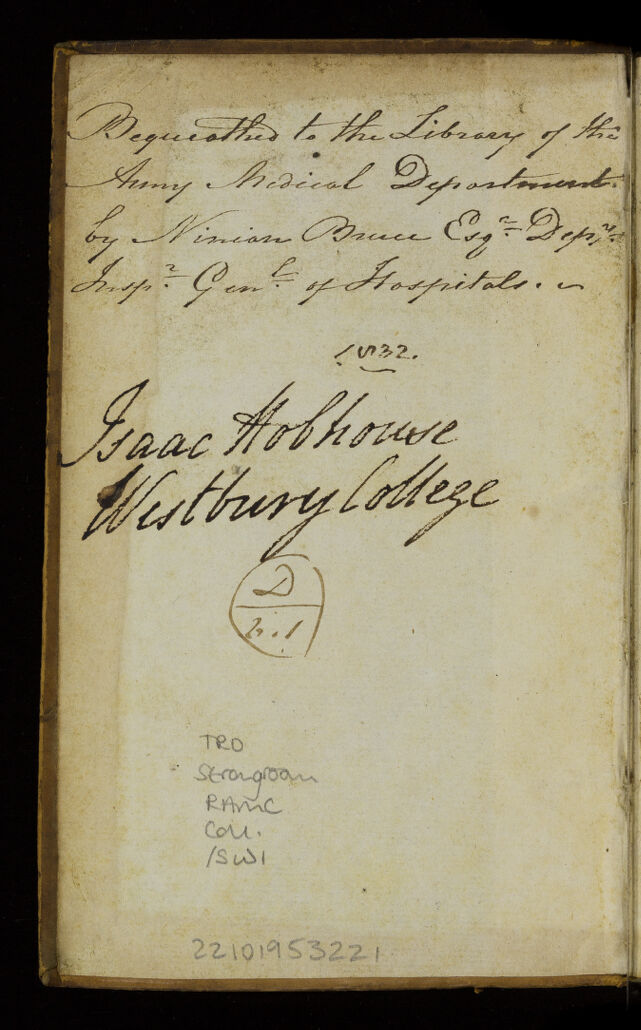 Bequeathed to the Library of the
Army Medical Department
by Ninian Bruce Esqr. Depy.
Inspr. Genl. of Hospitals.
1832.
Isaac Hobhouse
Westbury College
D
h.1
TRO
Strongroom
RAMC
Coll.
/SW1
22101953221